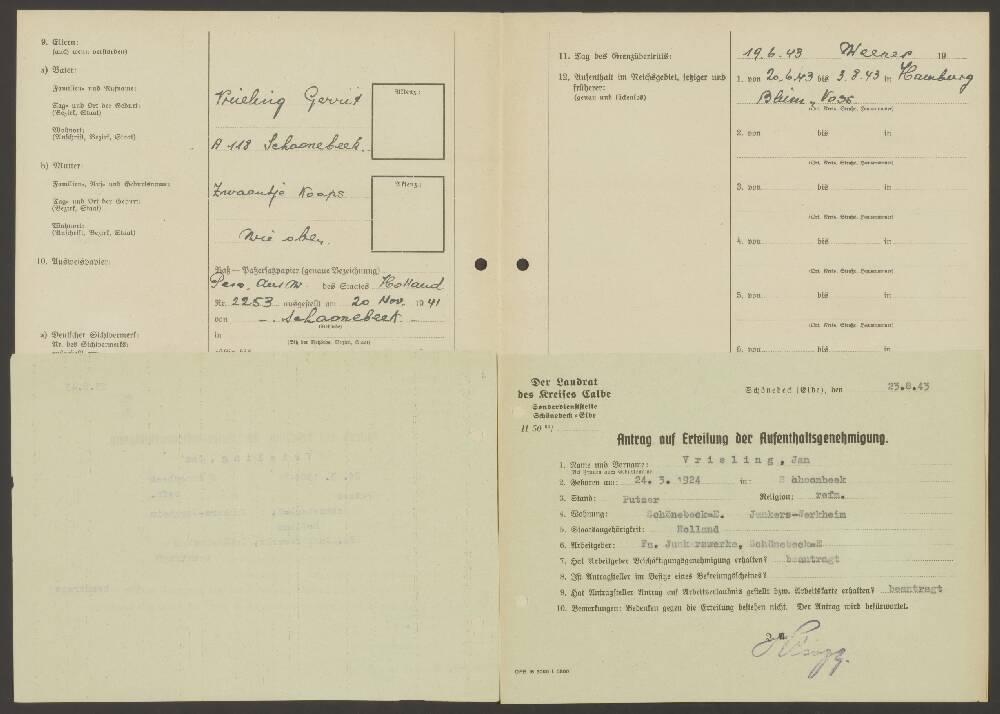 9. Eltern:
(auch wenn verstorben)
a) Vater:
Familien- und Rufname:
Tag- und Ort der Geburt:
(Bezirk, Staat)
Wohnort:
(Anschrift, Bezirk, Staat)
Vrieling Gerrit
A 118 Schoonebeek.
Aktenz.:
b) Mutter:
Familien-, Ruf- und Geburtsname:
Tag- und Ort der Geburt:
(Bezirk, Staat)
Wohnort:
(Anschrift, Bezirk, Staat)
Zwaantje Koops
Wie oben.
Aktenz.:
10. Ausweispapier:
Paß — Paßersatzpapier (genaue Bezeichnung)
Pers. Ausw. des Staates Holland
Nr. 2253 ausgestellt am 20 Nov. 1941
von -. Schoonebeek
(Behörde)
a) Deutscher Sichtvermerk:
Nr. des Sichtvermerks:
in
(Sitz der Behörde, Bezirk, Staat)
11. Tag des Grenzübertritts:
19.6.43 Weener 19
12. Aufenthalt im Reichsgebiet, jetziger und
früherer:
(genau und lückenlos)
1. von 20.6.43 bis 3.8.43 in Hamburg
Blum, Voss
(Ort, Kreis, Straße, Hausnummer)
2. von bis in
(Ort, Kreis, Straße, Hausnummer)
3. von bis in
(Ort, Kreis, Straße, Hausnummer)
4. von bis in
(Ort, Kreis, Straße, Hausnummer)
5. von bis in
(Ort, Kreis, Straße, Hausnummer)
6. von bis in
Der Landrat
des Kreises Calbe
Sonderdienststelle
Schönebeck-Elbe
II 50
Schönebeck (Elbe), den 23.8.43
Antrag auf Erteilung der Aufenthaltsgenehmigung.
1. Name und Vorname: Vrieling, Jan
Bei Frauen auch Geburtsname
2. Geboren am: 24. 3. 1924 in: Schoonbeek
3. Stand: Putzer Religion: refm.
4. Wohnung: Schönebeck-E. Junkers-Werkheim
5. Staatsangehörigkeit: Holland
6. Arbeitgeber: Fa. Junkerswerke, Schönebeck-E
7. Hat Arbeitgeber Beschäftigungsgenehmigung erhalten? beantragt
8. Ist Antragsteller im Besitze eines Befreiungsscheines?
9. Hat Antragsteller Antrag auf Arbeitserlaubnis gestellt bzw. Arbeitskarte erhalten? beantragt
10. Bemerkungen: Bedenken gegen die Erteilung bestehen nicht. Der Antrag wird befürwortet.
J. A.